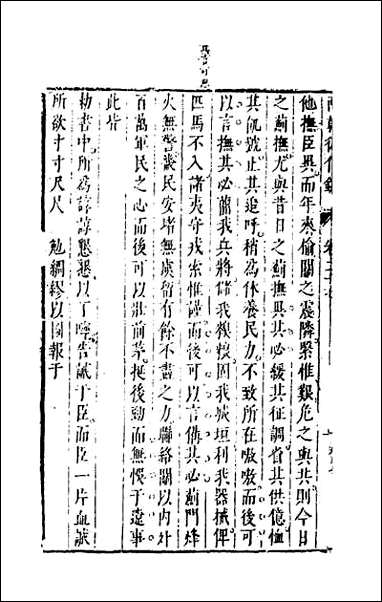 他撫臣異而年來偷關之震隣緊惟艱危之與共則今日
之薊撫尤與昔日之薊撫異其必緩其征調省其供億恤
其飢號止其追呼稍為休養民力不致所在嗷嗷而後可
以言撫其必簡我兵將儲我糗糧固我城垣利我器械俾
匹馬不入諸夷守戎索惟謹而後可以言備其必薊門烽
火無警畿民安堵無虞留有餘不盡之力聯絡關以內外
百萬軍民之心而後可以壯前茅挺後勁而無悞于遼事
此皆
勑書中所為諄諄懇懇以丁寧告誡于臣而臣一片血誠
所欲寸寸尺尺 勉綢繆以圖報于